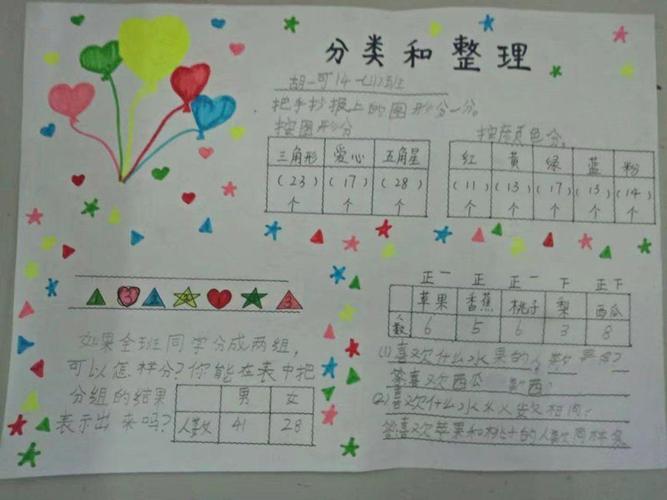 分类和整理
把手抄报上的图形分一分。
按图形分
按颜色分。
三角形 爱心 五角星
(23)个 (17)个 (28)个
红 黄 绿 蓝 粉
(11)个 (13)个 (17)个 (13)个 (14)个
1 3 2 2 1 3
如果全班同学分成两组,
可以怎样分?你能在表中把
分组的结果
表示出来吗?
男 女
人数 41 28
正一 正 正一 下 正下
苹果 香蕉 桃子 梨 西瓜
人数 6 5 6 3 8
(1)喜欢什么水果的人数最多?
答喜欢西瓜
(2)喜欢什么水果人数相同?
答喜欢苹果和桃子的人数同样多